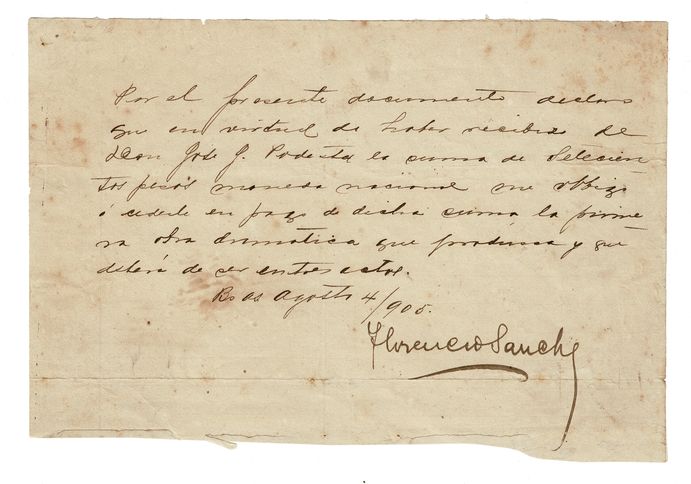 Por el presente documento declaro
que en virtud de haber recibido de
Don José J. Podestá la suma de Setecien
tos pesos moneda nacional me obligo
á cederle en pago de dicha suma la prime
ra obra dramática que produzca y que
deberá de ser en tres actos.
Bs as Agosto 4/905.
Florencio Sanchez